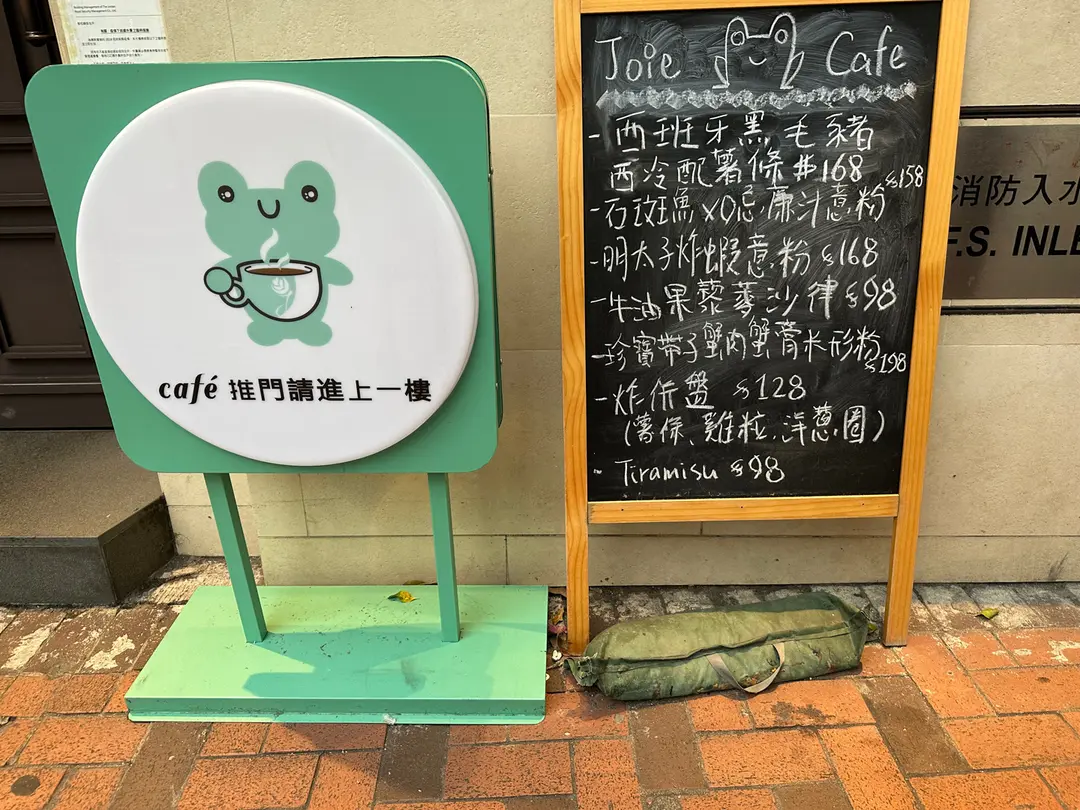 Joie Cafe
- 西班牙黑毛豬
西冷配薯條 $168
- 石斑魚XO忌廉汁意粉 $158
- 明太子炸蝦意粉 $168
- 牛油果藜麥沙律 $98
- 珍寶帶子蟹肉蟹膏米形粉 $198
- 炸併盤 $128
(薯條、雞粒、洋蔥圈)
- Tiramisu $98
café 推門請進上一樓
消防入水
F.S. INLE